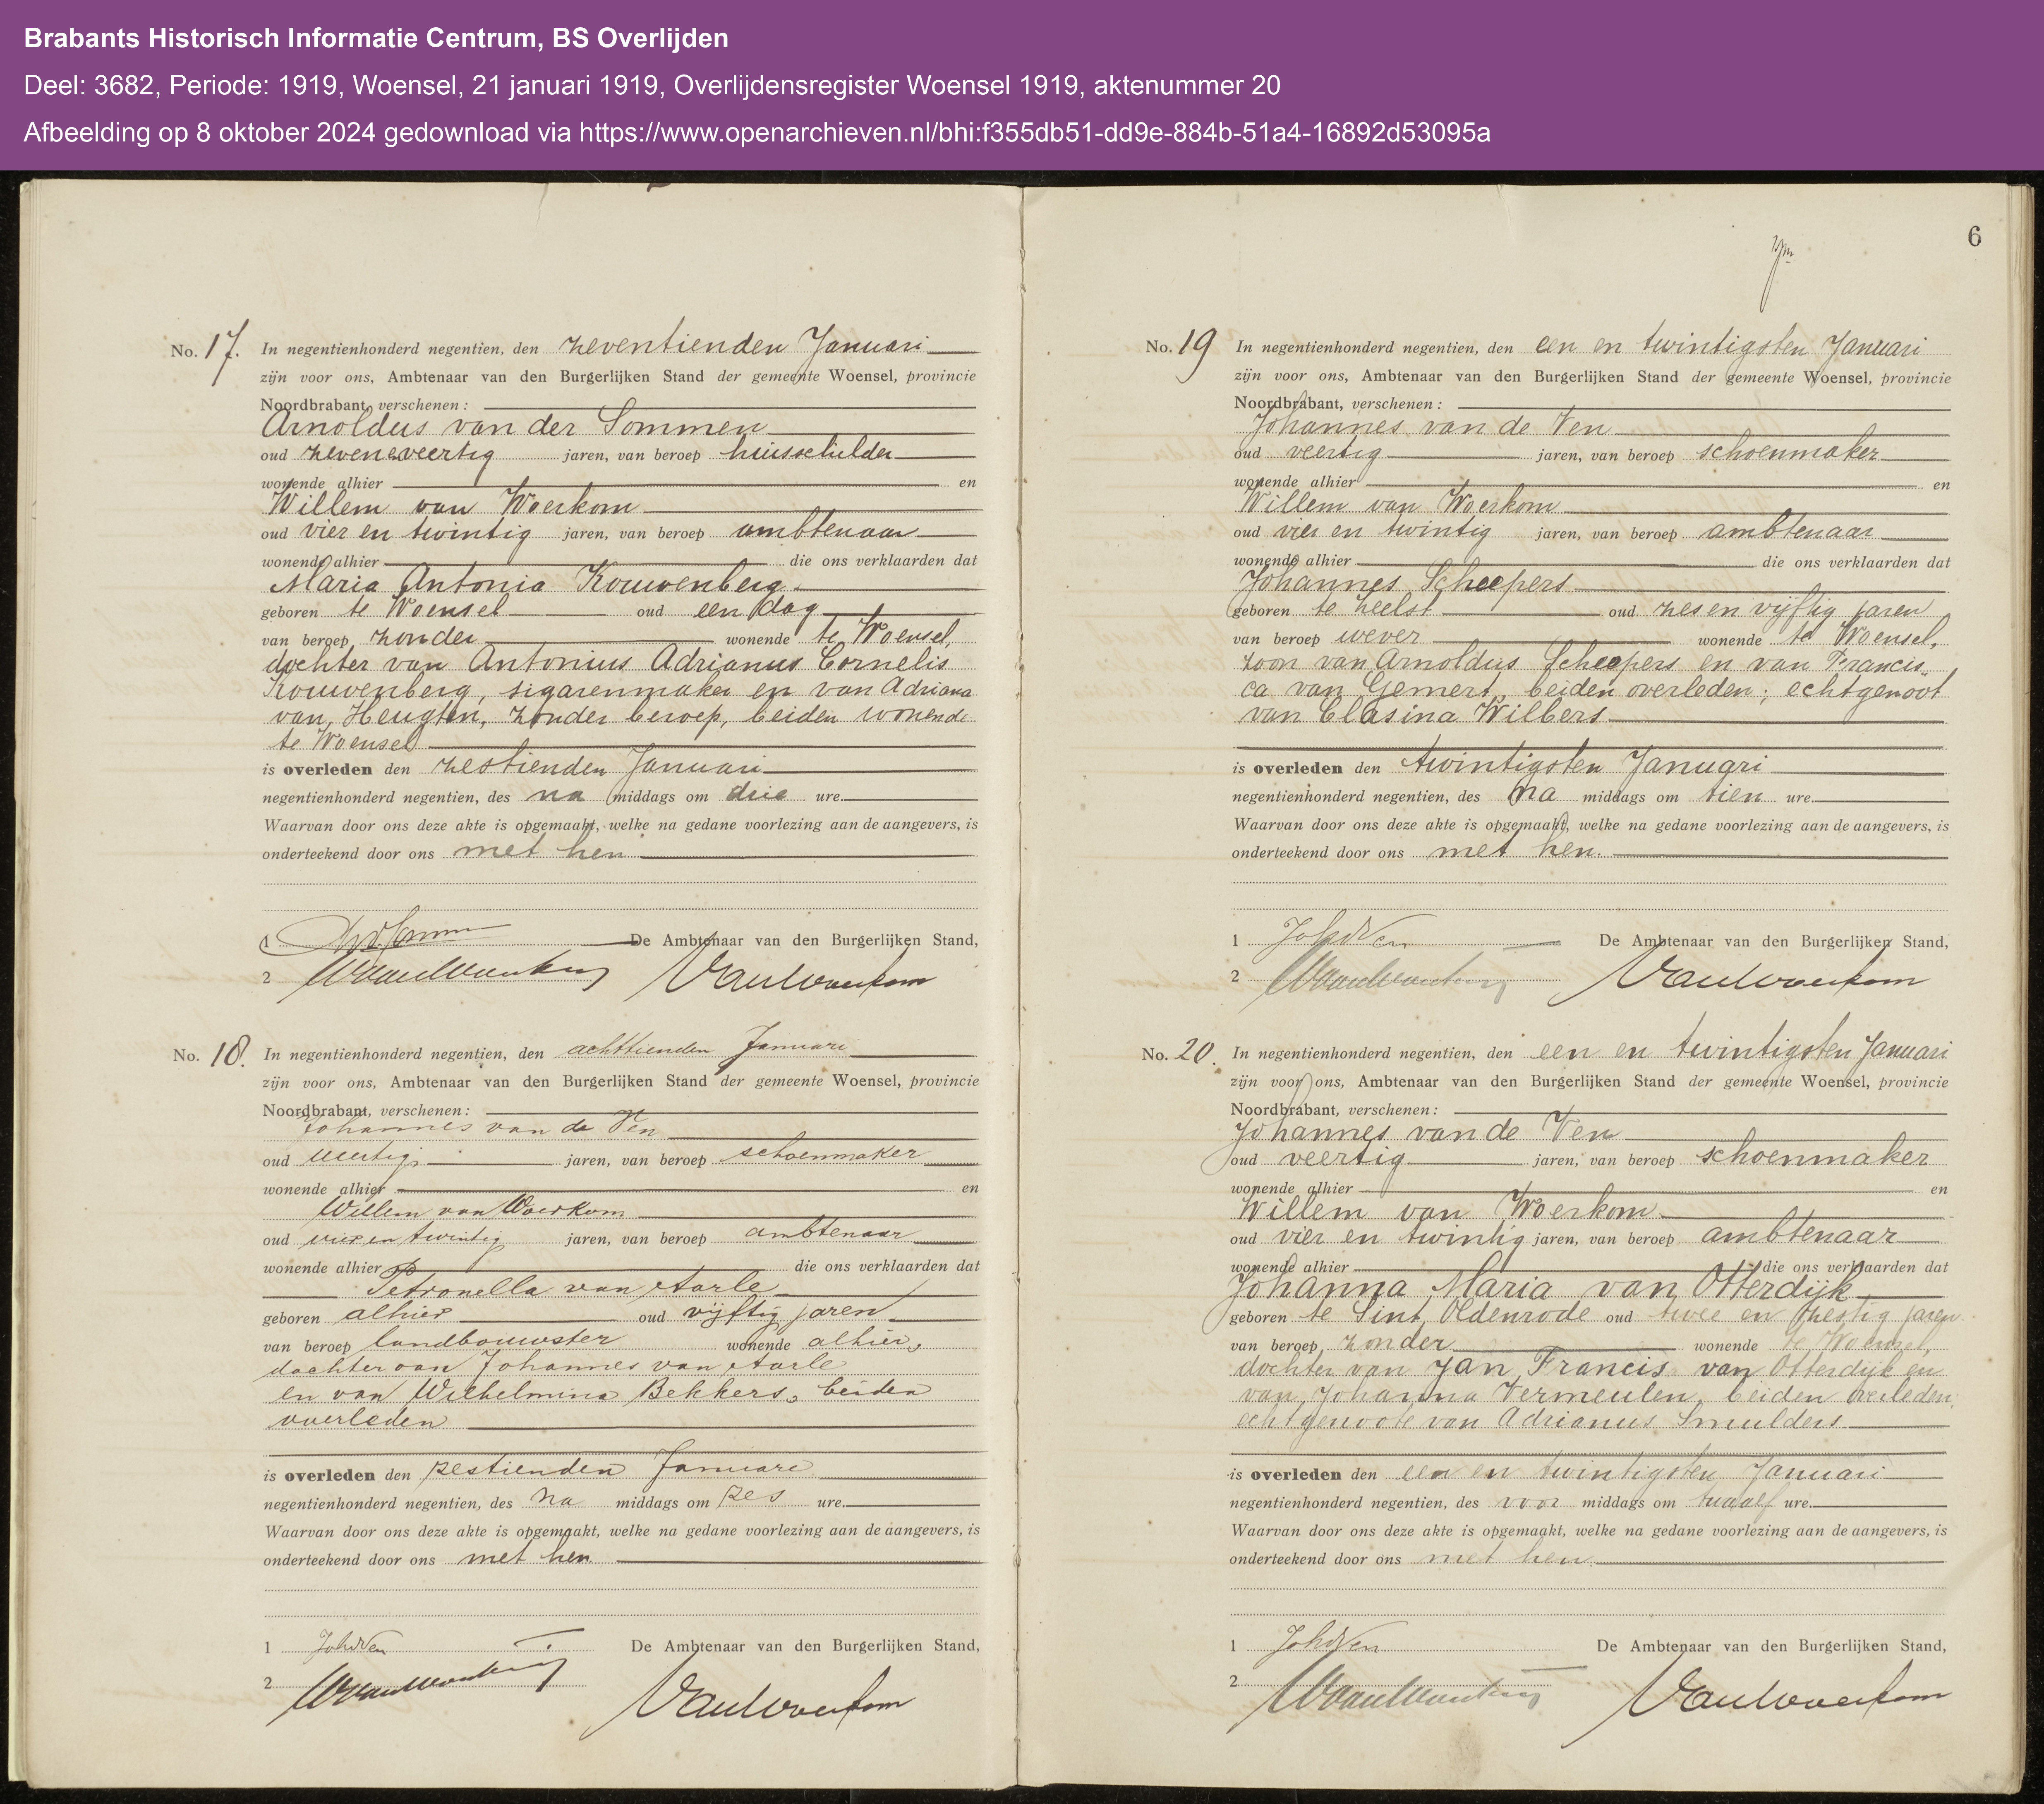 Brabants Historisch Informatie Centrum, BS Overlijden
Deel: 3682, Periode: 1919, Woensel, 21 januari 1919, Overlijdensregister Woensel 1919, aktenummer 20
Afbeelding op 8 oktober 2024 gedownload via https://www.openarchieven.nl/bhi:f355db51-dd9e-884b-51a4-16892d53095a
No. 17. In negentienhonderd negentien, den zeventienden Januari
zijn voor ons, Ambtenaar van den Burgerlijken Stand der gemeente Woensel, provincie
Noordbrabant, verschenen:
Arnoldus van der Sommen
oud zevenenveertig jaren, van beroep huisschilder
wonende alhier en
Willem van Woerkom
oud vier en twintig jaren, van beroep ambtenaar
wonende alhier die ons verklaarden dat
Maria Antonia Kouwenberg
geboren te Woensel oud een dag
van beroep zonder wonende te Woensel,
dochter van Antonius Adrianus Cornelis
Kouwenberg, sigarenmaker en van Adriana
van Heugten, zonder beroep, beiden wonende
te Woensel
is overleden den zestienden Januari
negentienhonderd negentien, des na middags om drie ure.
Waarvan door ons deze akte is opgemaakt, welke na gedane voorlezing aan de aangevers, is
onderteekend door ons met hen
1 De Ambtenaar van den Burgerlijken Stand,
2 WvanWoerkom VanWoerkom
No. 18. In negentienhonderd negentien, den achttienden Januari
zijn voor ons, Ambtenaar van den Burgerlijken Stand der gemeente Woensel, provincie
Noordbrabant, verschenen:
Johannes van de Ven
oud veertig jaren, van beroep schoenmaker
wonende alhier en
Willem van Woerkom
oud vier en twintig jaren, van beroep ambtenaar
wonende alhier die ons verklaarden dat
Petronella van Aarle
geboren alhier oud vijftig jaren
van beroep landbouwster wonende alhier,
dochter van Johannes van Aarle
en van Wilhelmina Bekkers, beiden
overleden
is overleden den zestienden Januari
negentienhonderd negentien, des na middags om zes ure.
Waarvan door ons deze akte is opgemaakt, welke na gedane voorlezing aan de aangevers, is
onderteekend door ons met hen
1 JohvdVen De Ambtenaar van den Burgerlijken Stand,
2 WvanWoerkom VanWoerkom
6
No. 19 In negentienhonderd negentien, den een en twintigsten Januari
zijn voor ons, Ambtenaar van den Burgerlijken Stand der gemeente Woensel, provincie
Noordbrabant, verschenen:
Johannes van de Ven
oud veertig jaren, van beroep schoenmaker
wonende alhier en
Willem van Woerkom
oud vier en twintig jaren, van beroep ambtenaar
wonende alhier die ons verklaarden dat
Johannes Scheepers
geboren te Zeelst oud zes en vijftig jaren
van beroep wever wonende te Woensel,
zoon van Arnoldus Scheepers en van Francis-
ca van Gemert, beiden overleden; echtgenoot
van Clasina Wilbers
is overleden den twintigsten Januari
negentienhonderd negentien, des na middags om tien ure.
Waarvan door ons deze akte is opgemaakt, welke na gedane voorlezing aan de aangevers, is
onderteekend door ons met hen.
1 JohvdVen De Ambtenaar van den Burgerlijken Stand,
2 WvanWoerkom VanWoerkom
No. 20. In negentienhonderd negentien, den een en twintigsten Januari
zijn voor ons, Ambtenaar van den Burgerlijken Stand der gemeente Woensel, provincie
Noordbrabant, verschenen:
Johannes van de Ven
oud veertig jaren, van beroep schoenmaker
wonende alhier en
Willem van Woerkom
oud vier en twintig jaren, van beroep ambtenaar
wonende alhier die ons verklaarden dat
Johanna Maria van Otterdijk
geboren te Sint Oldenrode oud twee en zestig jaren
van beroep zonder wonende te Woensel,
dochter van Jan Francis van Otterdijk en
van Johanna Vermeulen, beiden overleden;
echtgenoote van Adrianus Smulders
is overleden den een en twintigsten Januari
negentienhonderd negentien, des voor middags om twaalf ure.
Waarvan door ons deze akte is opgemaakt, welke na gedane voorlezing aan de aangevers, is
onderteekend door ons met hen
1 JohvdVen De Ambtenaar van den Burgerlijken Stand,
2 WvanWoerkom VanWoerkom